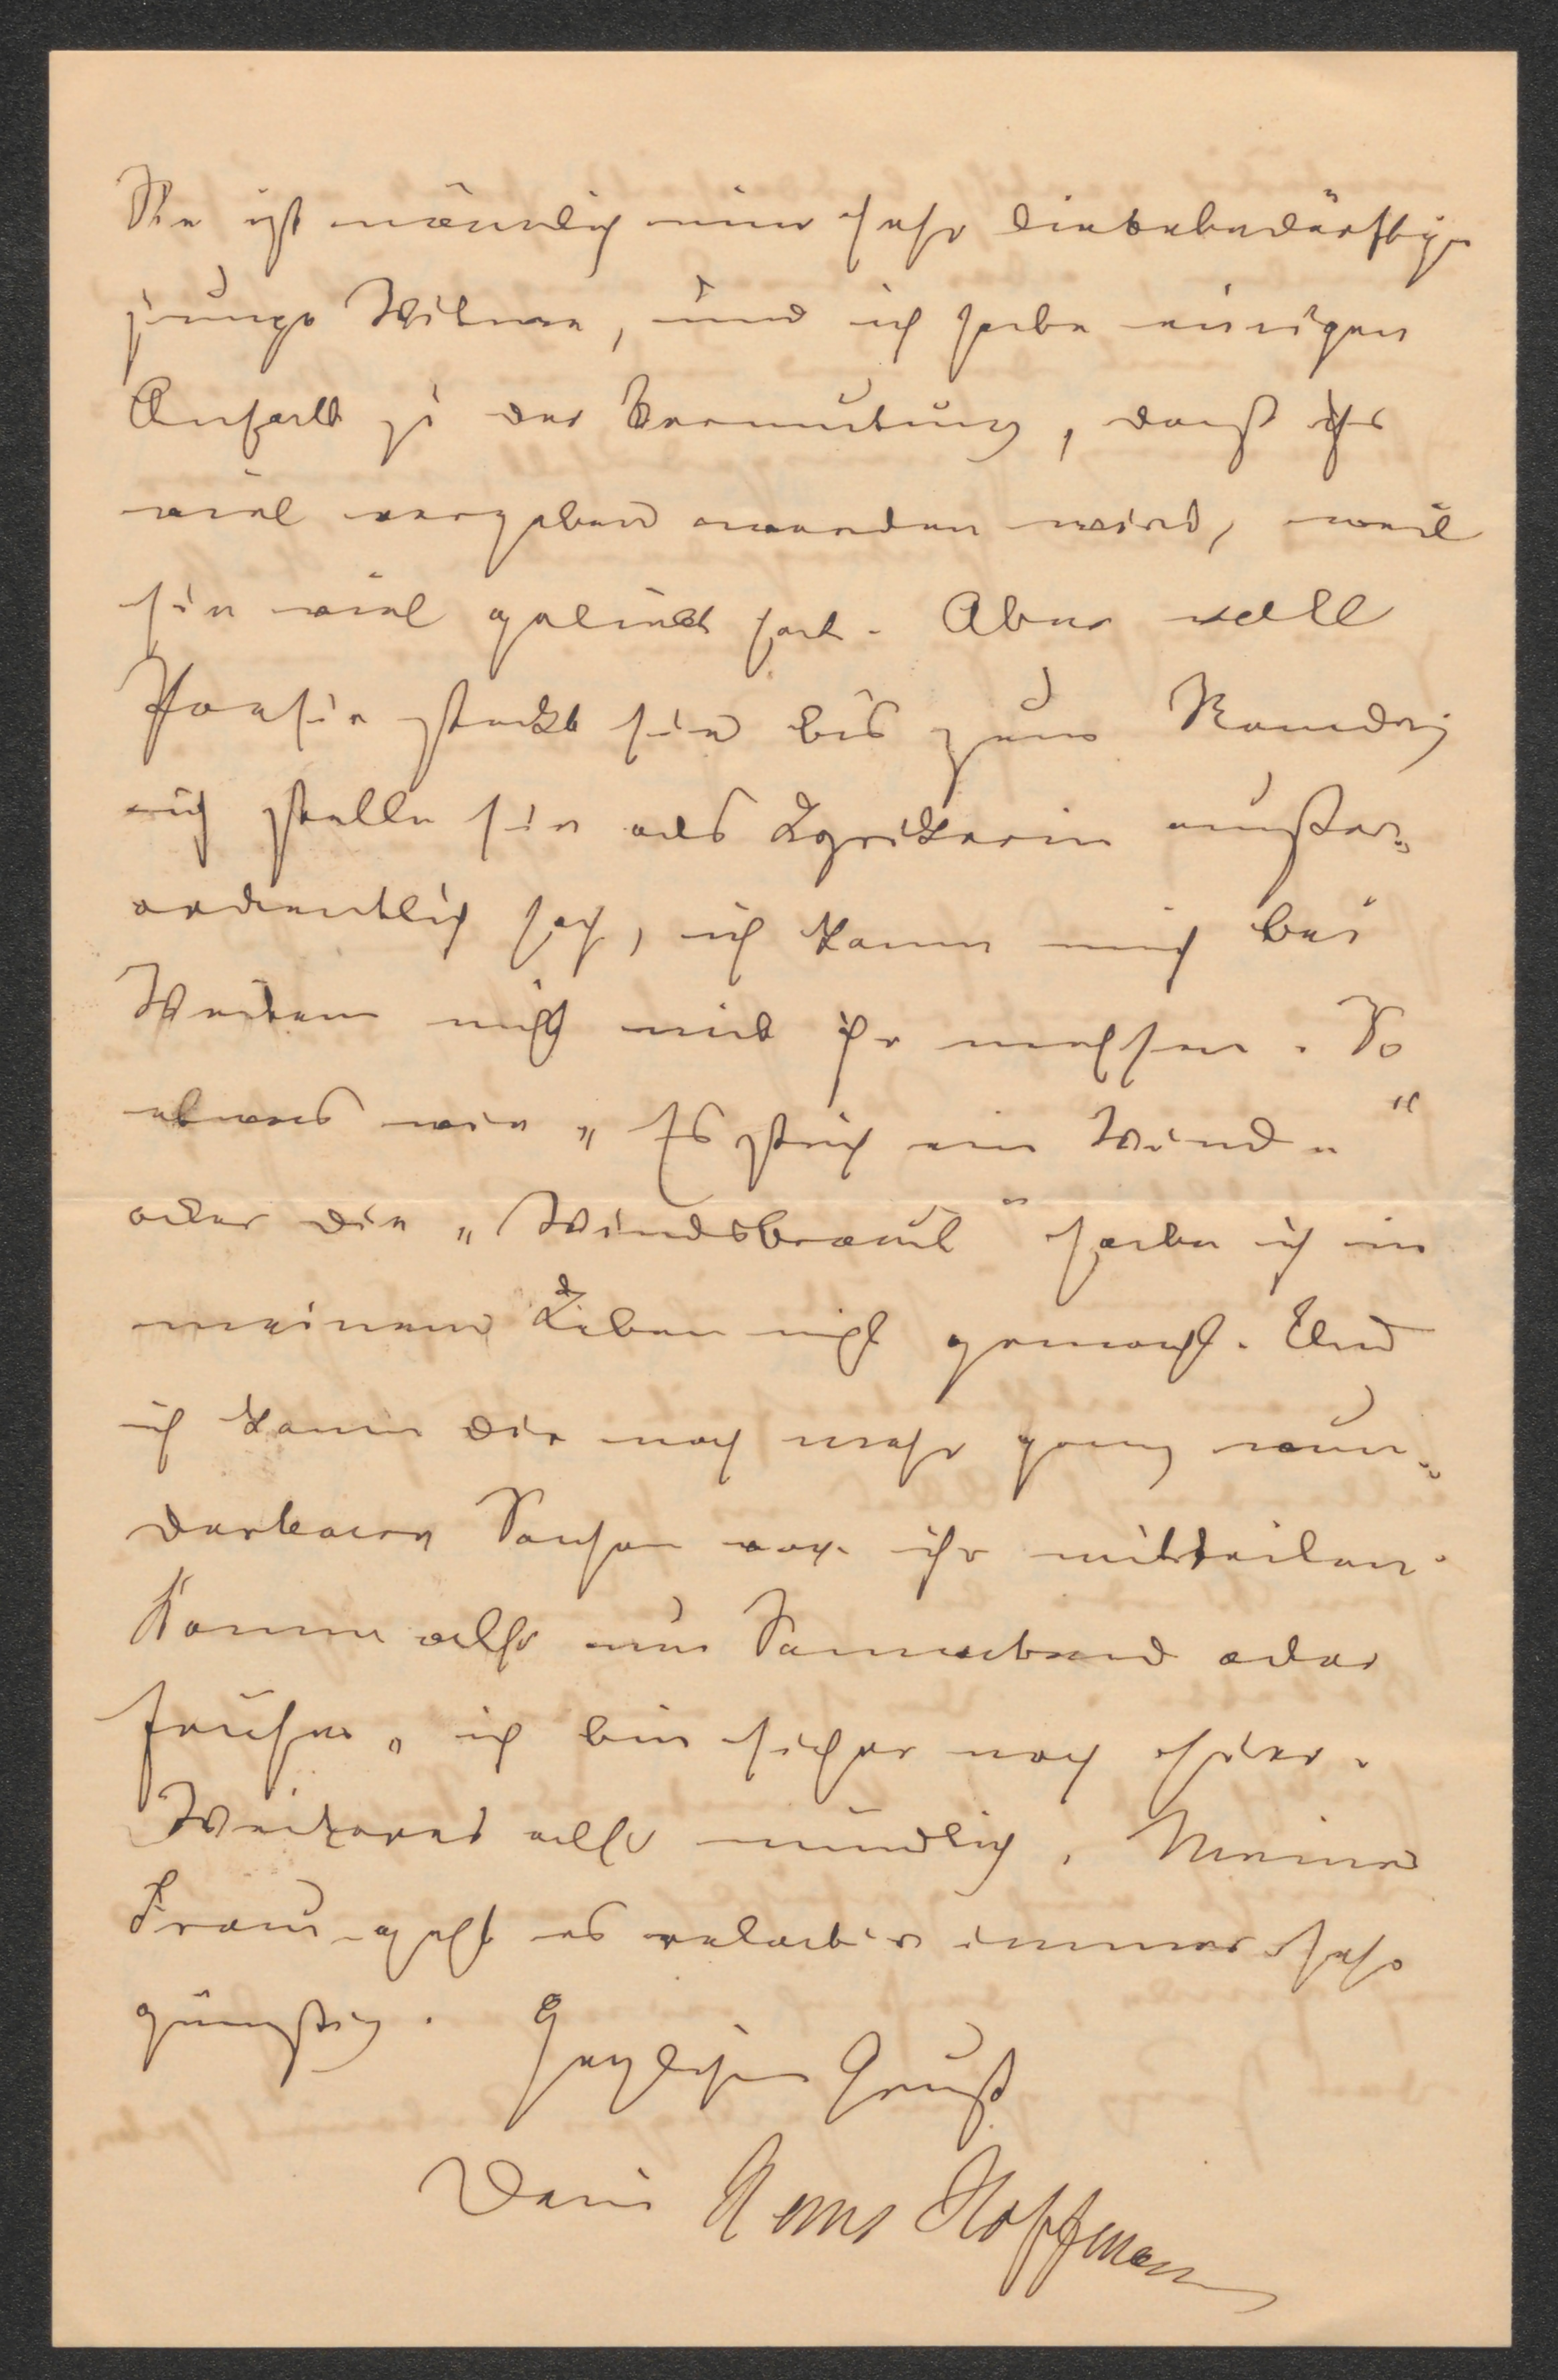 Sie ist nämlich eine sehr liebebedürftige
junge Witwe, und ich habe einigen
Anhalt zu der Vermutung, daß ihr
viel vergeben werden wird, weil
sie viel geliebt hat. Aber voll
Poesie steckt sie bis zum Rand;
ich stelle sie als Lyrikerin außer-
ordentlich hoch, ich kann mich bei
Weitem nicht mit ihr messen. So
etwas wie „Es strich ein Wind"
oder die „Windsbraut" habe ich in
meinem Leben nicht gemacht. Und
ich kann Dir noch mehr ganz wun-
derbare Sachen von ihr mitteilen.
Komme also nun Sonnabend oder
früher, ich bin sicher noch hier.
Weiteres also mündlich. Meiner
Frau geht es relativ immer sehr
günstig. Herzlichen Gruß
Dein Hans Hoffmann